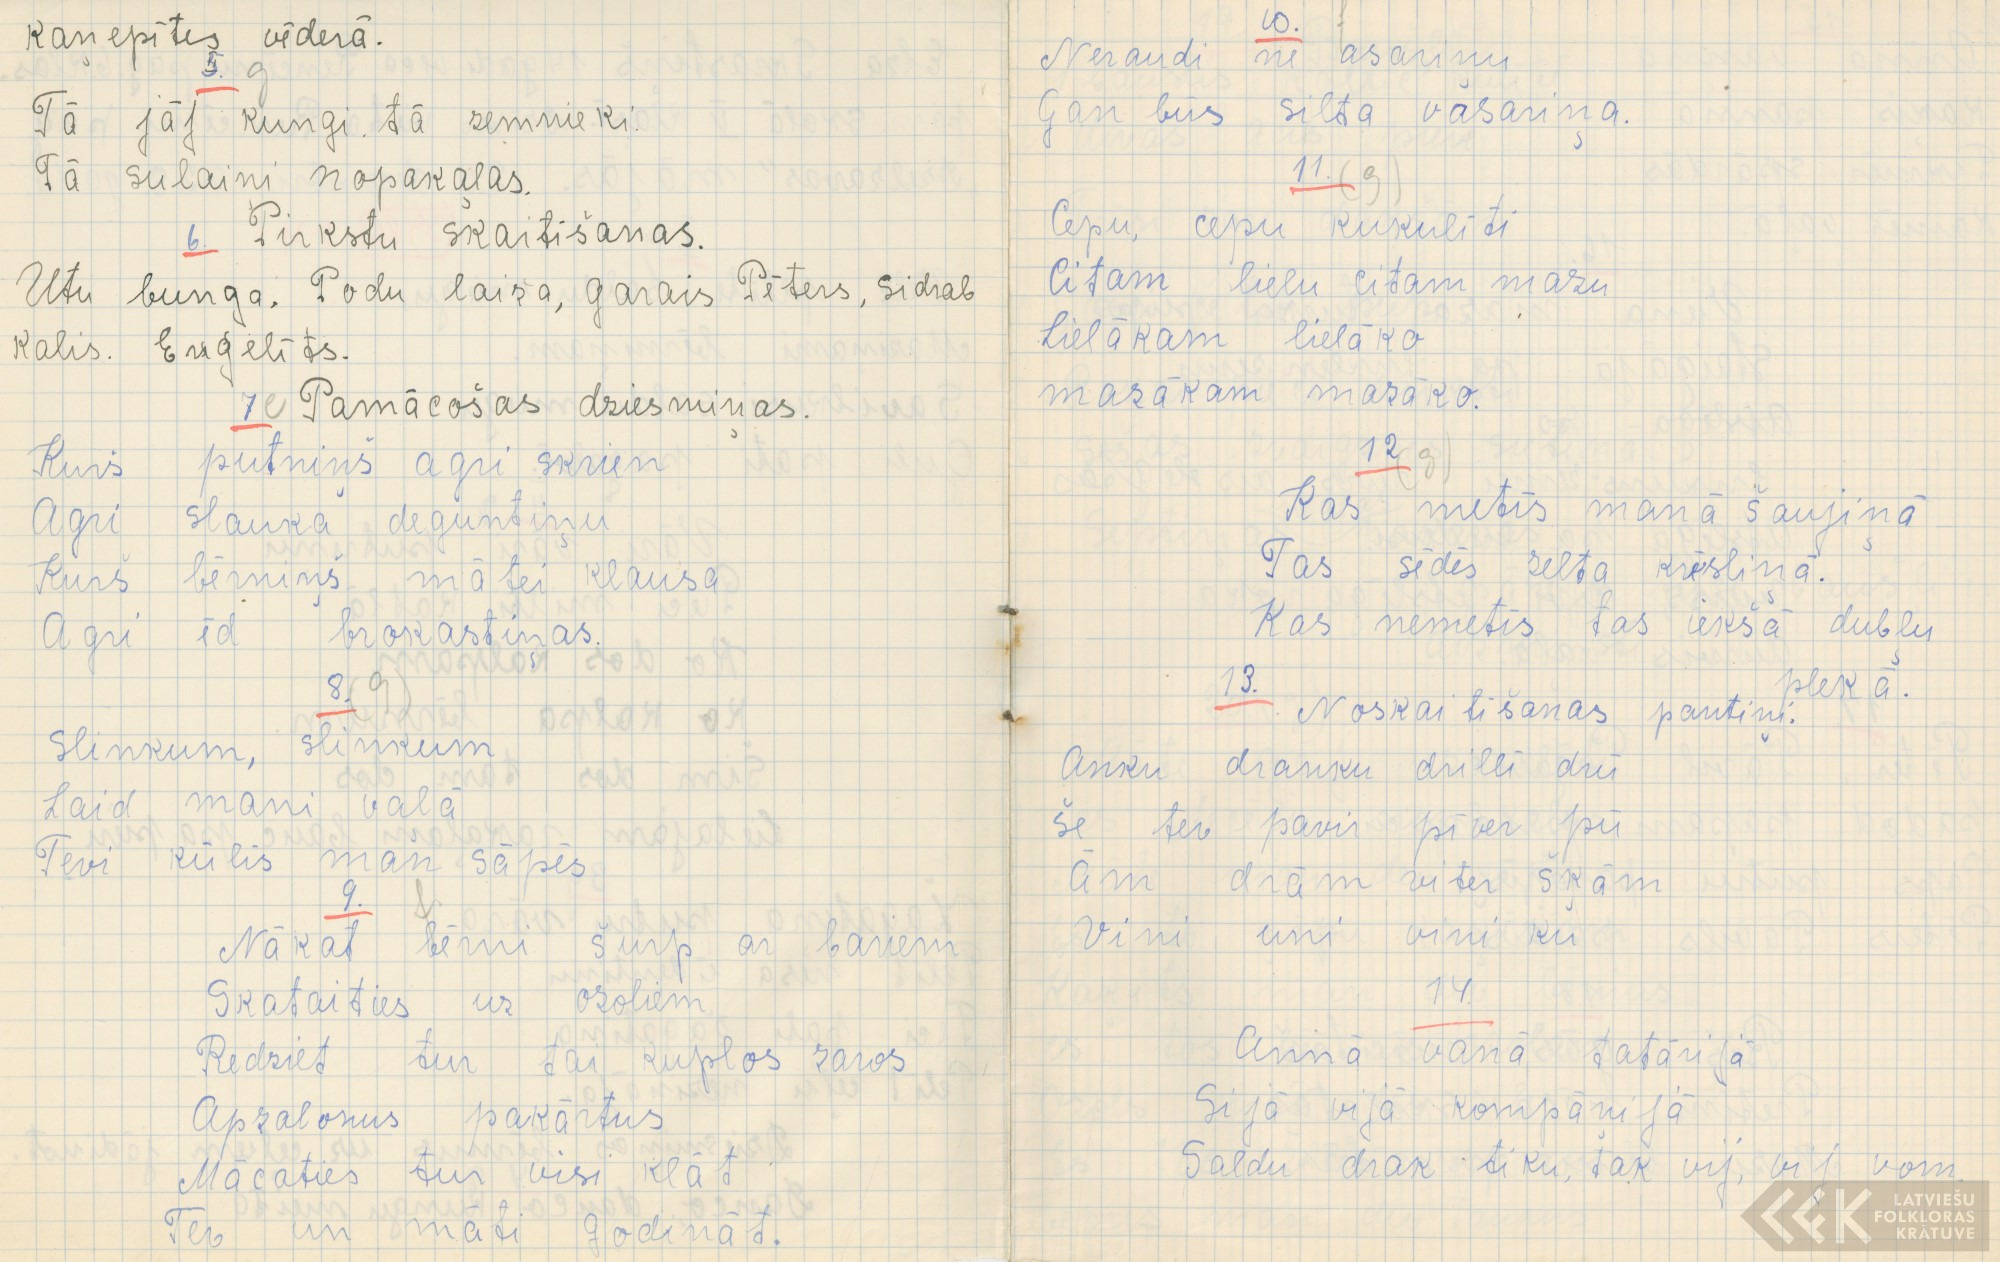 kaņepītes vēderā.
5. g
Tā jāj kungi. tā zemnieki.
Tā sulaiņi nopakaļas.
6. Pirkstu skaitīšanas.
Utu bunga. Podu laiza, garais Pēters, sidrab
kalis. Eņģelīts.
7 e Pamācošas dziesmiņas.
Kurš putniņš agri skrien
Agri slauka deguntiņu
Kurš bērniņš mātei klausa
Agri ēd brokastiņas.
8. (g)
Slinkum, slinkum
Laid mani vaļā
Tevi kūlis man sāpēs
9.
Nākat bērni šurp ar bariem
Skataities uz ozoliem
Redziet tur tai kuplos zaros
Apzalonus pakārtus
Mācaties tur visi klāt
Tēv un māti godināt.
10.
Neraudi ne asariņu
Gan būs silta vāsariņa.
11. (g)
Cepu, cepu kukulīti
Citam lielu citam mazu
Lielākam lielāko
mazākam mazāko.
12 (g)
Kas metīs manā šaujiņā
Tas sēdēs zelta krēsliņā.
Kas nemetīs tas iekšā dubļu
plekā.
13. Noskaitīšanas pantiņi.
Anku dranku drillī drū
še tev pavir pīver pū
Ām drām viter šķām
Vini uni vini kū
14.
Annā vanā tatārijā
Sijā vijā kompānijā
Saldu drak tiku, tak vij, vij vom.
LATVIEŠU
FOLKLORAS
KRĀTUVE